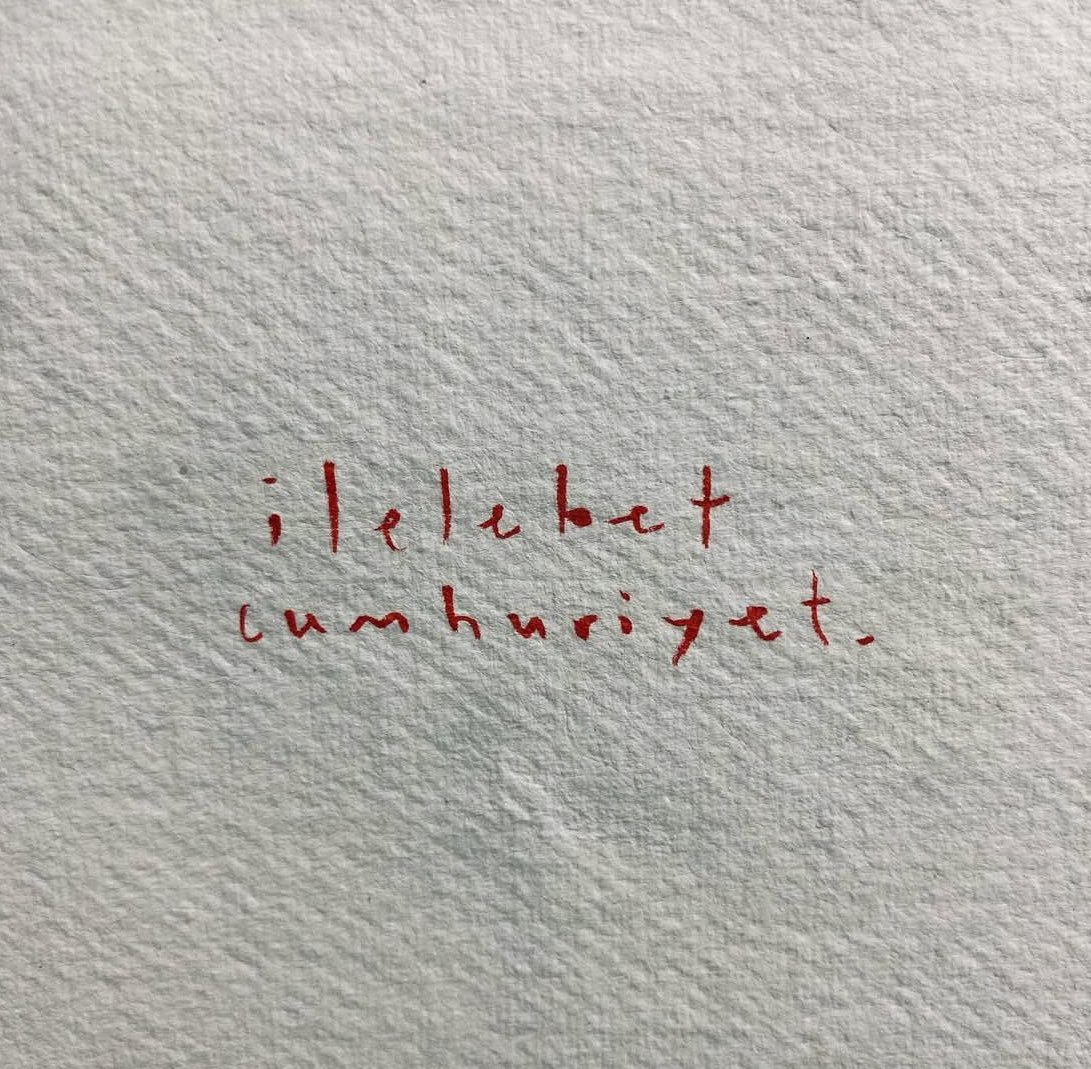 ilelebet
cumhuriyet.